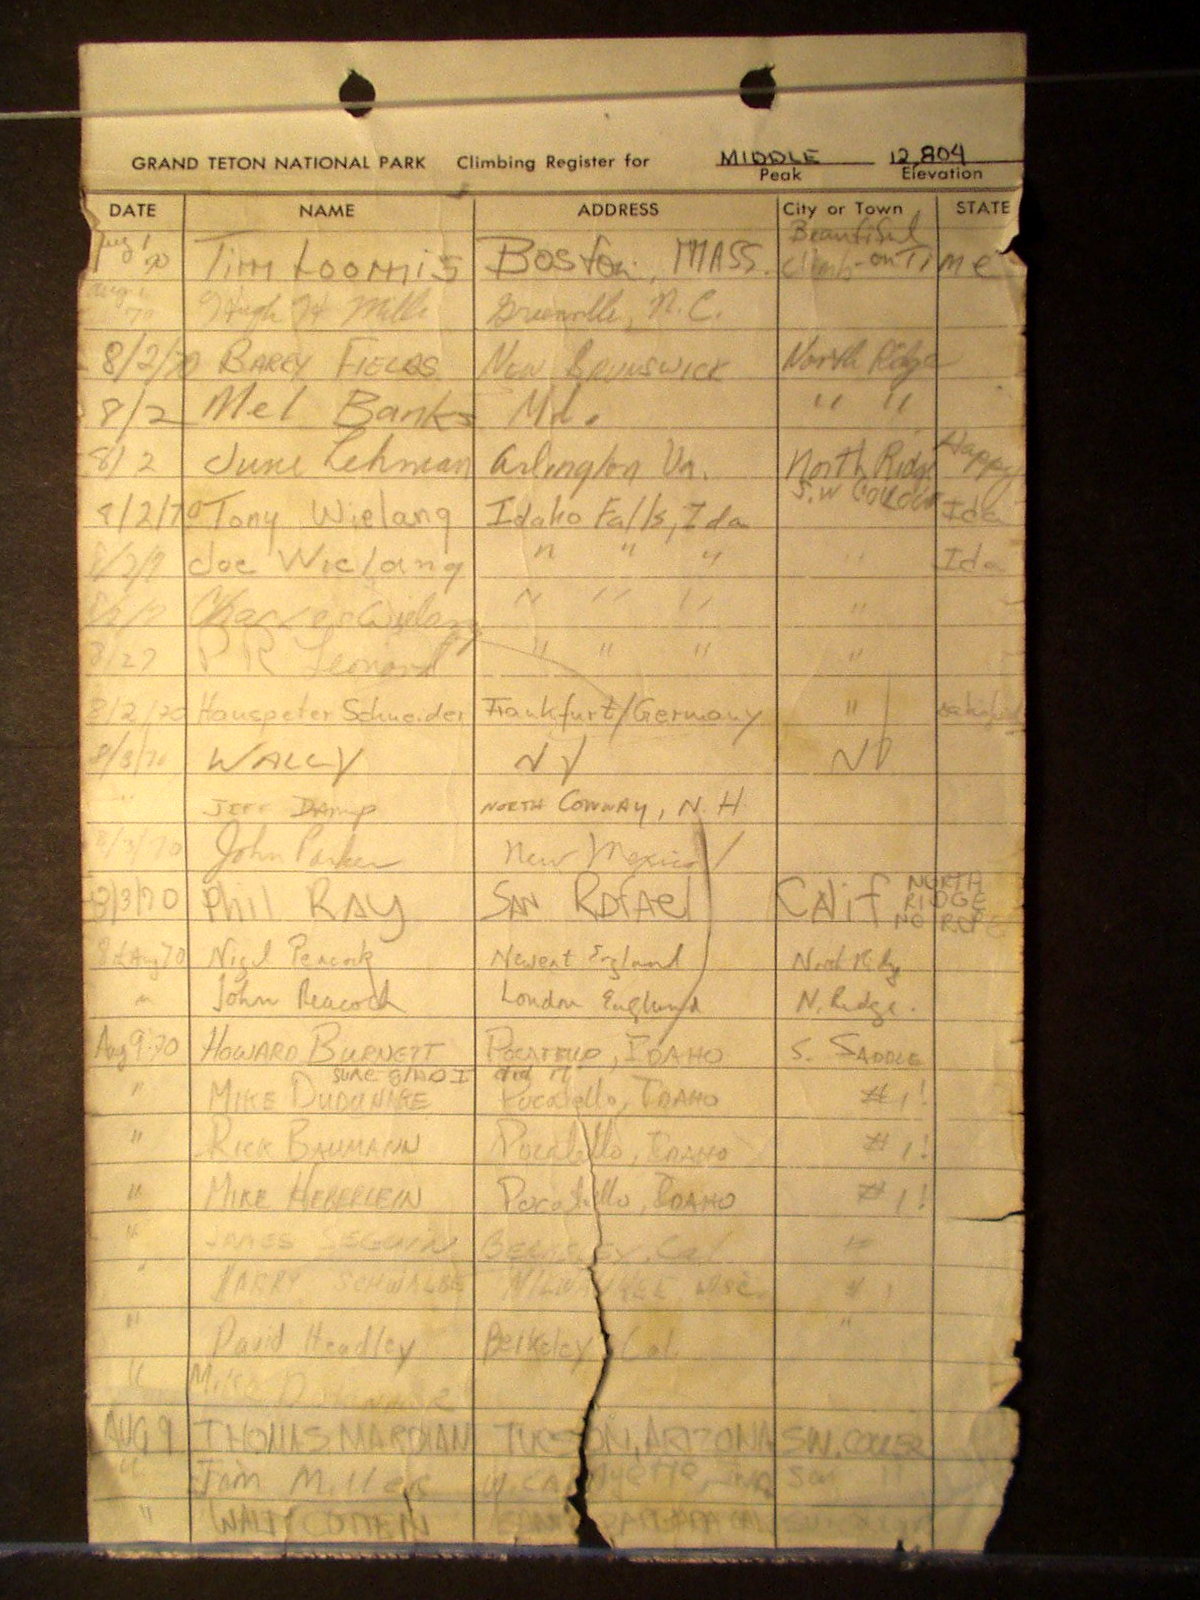 GRAND TETON NATIONAL PARK Climbing Register for MIDDLE 12,804
Peak Elevation
DATE NAME ADDRESS City or Town STATE
Aug 1 70 Tim Loomis Boston, MASS. Beautiful climb - on Time
Aug 1 70 Hugh H Mills Greenville, N.C.
8/2/70 BARRY FIELDS New Brunswick North Ridge
8/2 Mel Banks Md. " "
8/2 June Lehman Arlington Va. North Ridge Happy
8/2/70 Tony Wielang Idaho Falls, Ida S.W Ida
8/2/7 Joe Wielang " " " " Ida
Charles Wielang " " " "
8/27 P R Leonard " " " "
8/2/70 Hanspeter Schneider Frankfurt/Germany "
8/3/70 WALLY NY NY
" JEFF DAMP NORTH CONWAY, N.H
8/3/70 John Parker New Mexico
8/3/70 Phil RAY SAN RAFAEL CALIF NORTH RIDGE NO ROPE
8th Aug 70 Nigel Peacock Newent England North Ridge
" John Peacock London England N. Ridge.
Aug 9 70 HOWARD BURNETT POCATELLO, IDAHO S. SADDLE
sure glad I did it
" MIKE Pocatello, IDAHO #1!
" RICK BAUMANN Pocatello, IDAHO #1!
" MIKE HEBERLEIN Pocatello, IDAHO #1!
" JAMES SEGUIN BERKELEY, Cal #
" HARRY SCHWALBE MILWAUKEE, WISC. # 1
" David Headley Berkeley Cal. "
" Mike
AUG 9 THOMAS MARDIAN TUCSON, ARIZONA S.W.
" Jim Miller W. LAFAYETTE, IND. SW "
" WALT COTTEN